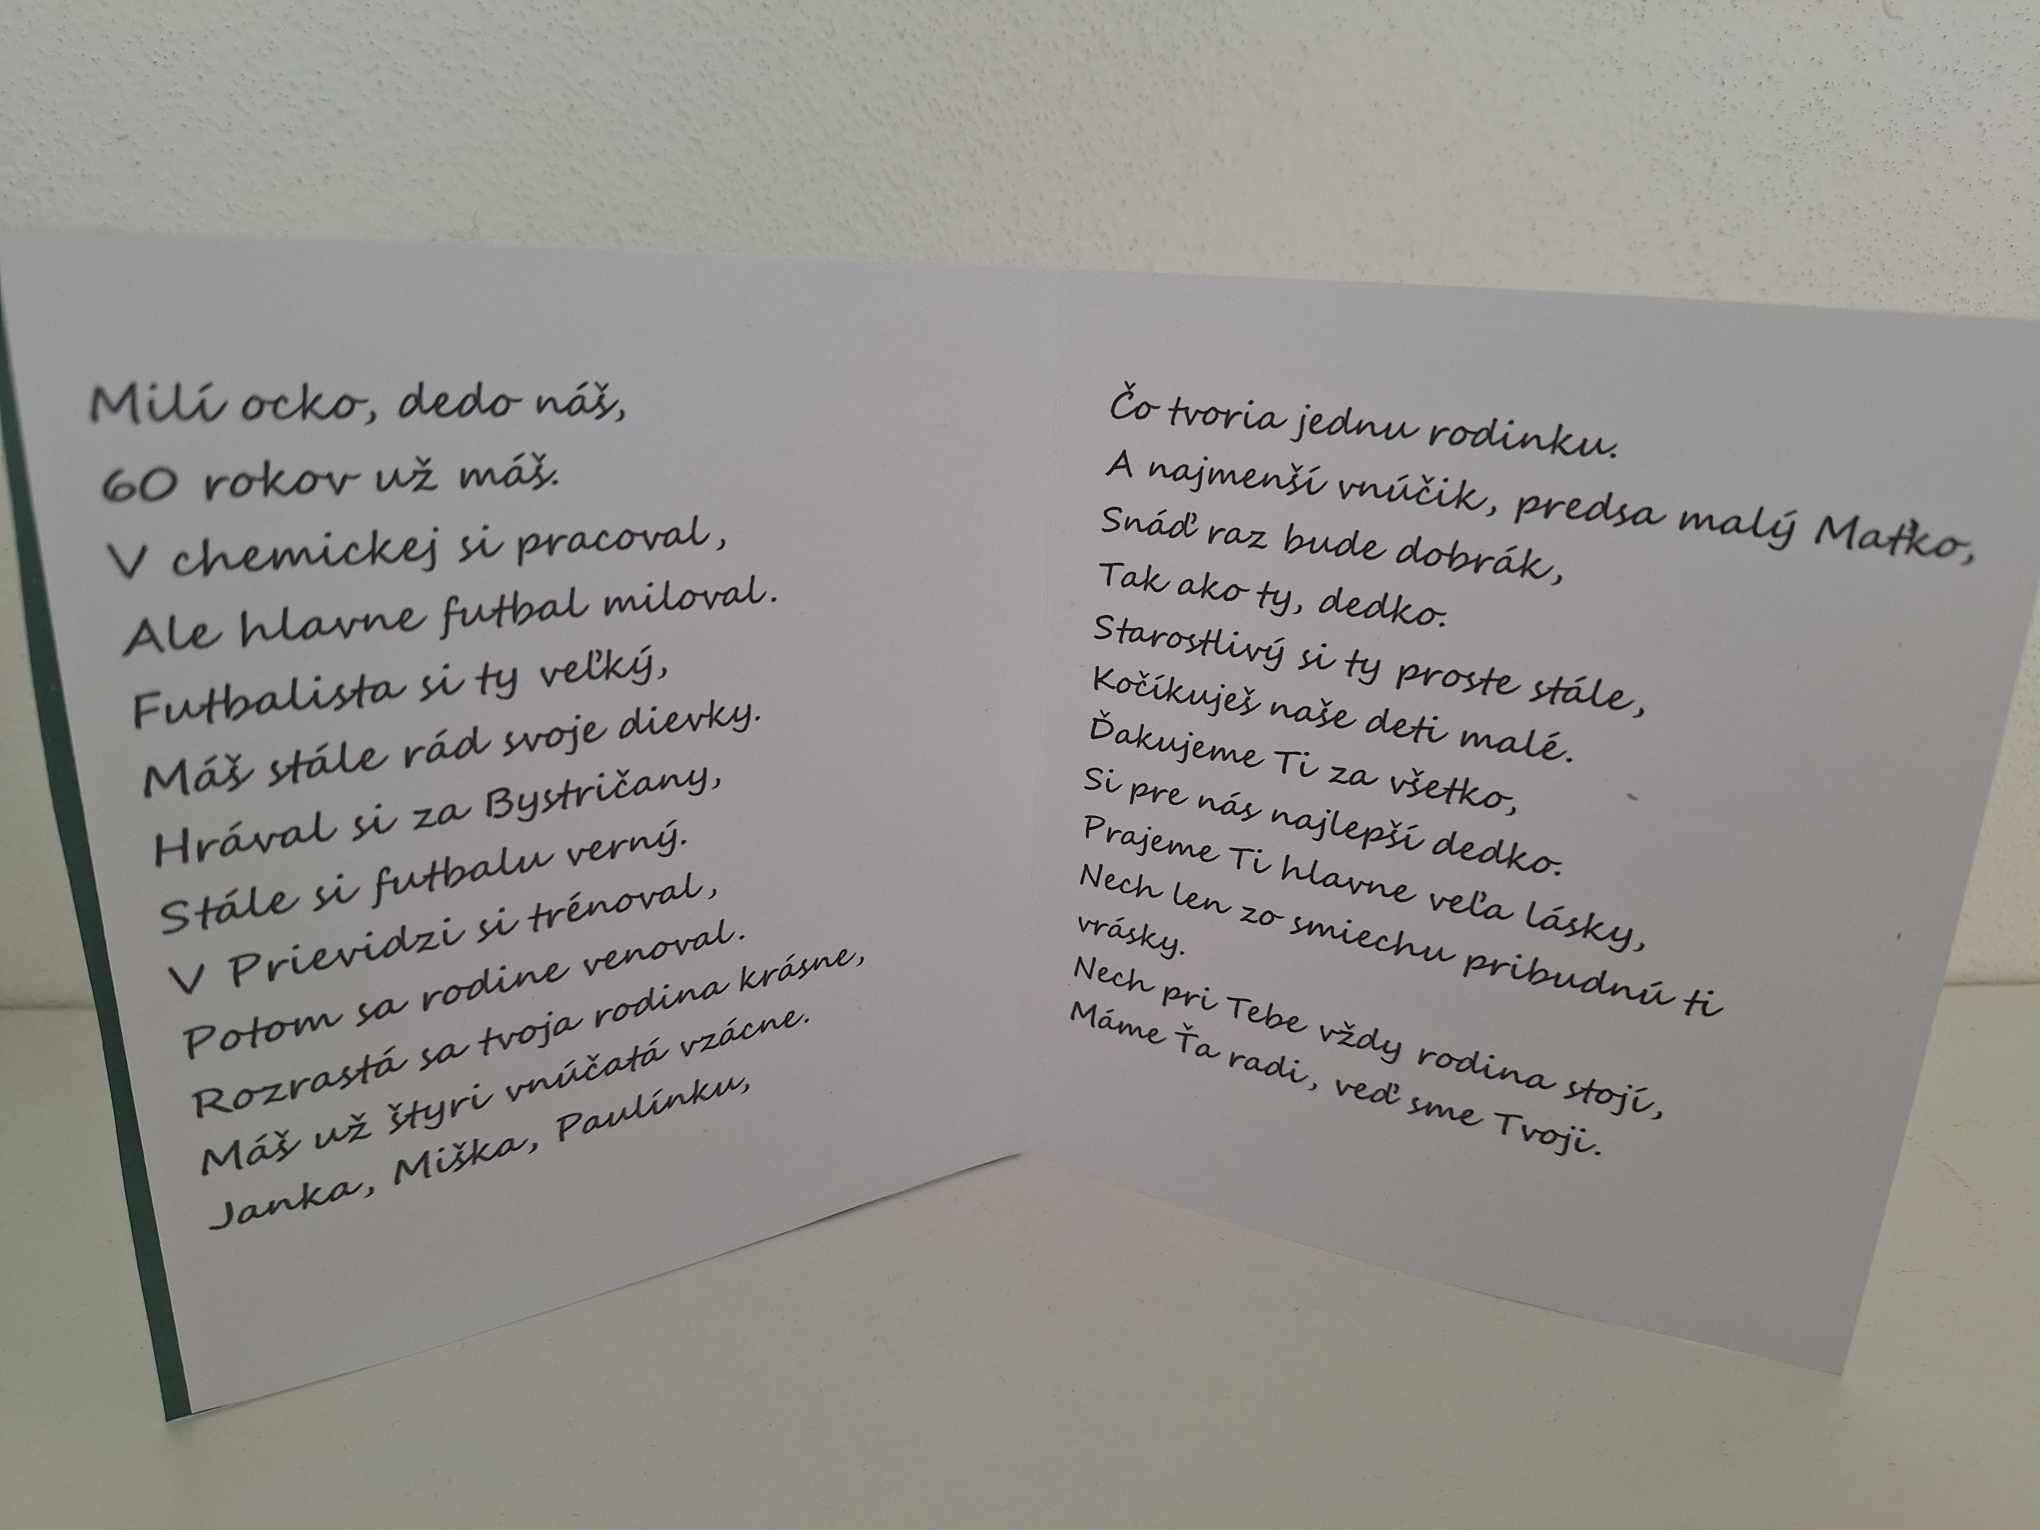 Milí ocko, dedo náš,
60 rokov už máš.
V chemickej si pracoval,
Ale hlavne futbal miloval.
Futbalista si ty veľký,
Máš stále rád svoje dievky.
Hrával si za Bystričany,
Stále si futbalu verný.
V Prievidzi si trénoval,
Potom sa rodine venoval.
Rozrastá sa tvoja rodina krásne,
Máš už štyri vnúčatá vzácne.
Janka, Miška, Paulínku,
Čo tvoria jednu rodinku.
A najmenší vnúčik, predsa malý Maťko,
Snáď raz bude dobrák,
Tak ako ty, dedko.
Starostlivý si ty proste stále,
Kočíkuješ naše deti malé.
Ďakujeme Ti za všetko,
Si pre nás najlepší dedko.
Prajeme Ti hlavne veľa lásky,
Nech len zo smiechu pribudnú ti
vrásky.
Nech pri Tebe vždy rodina stojí,
Máme Ťa radi, veď sme Tvoji.